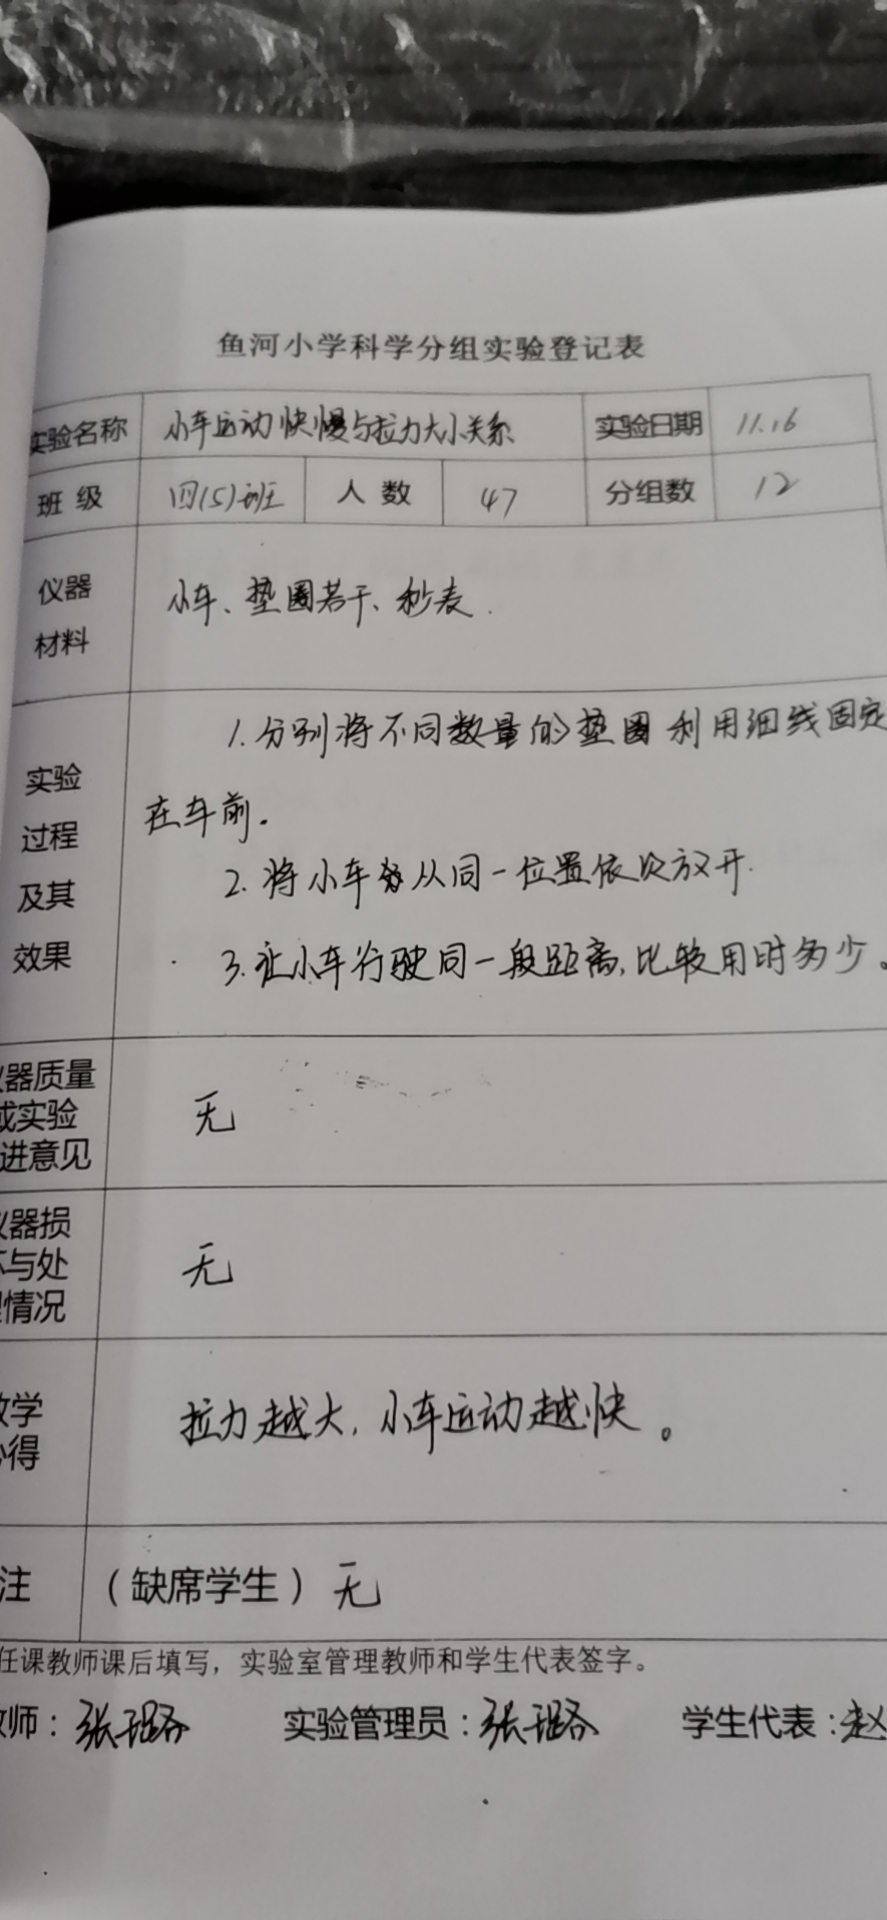 鱼河小学科学分组实验登记表
实验名称 小车运动快慢与拉力大小关系 实验日期 11.16
班 级 四(5)班 人 数 47 分组数 12
仪器
材料
小车、垫圈若干、秒表.
实验
过程
及其
效果
1.分别将不同数量的垫圈利用细线固定
在车前.
2.将小车从同一位置依次放开.
3.让小车行驶同一段距离,比较用时多少。
器质量
或实验
进意见
无
器损
与处
情况
无
学
得
拉力越大,小车运动越快。
注 (缺席学生) 无
任课教师课后填写，实验室管理教师和学生代表签字。
师：张璐 实验管理员：张璐 学生代表：赵